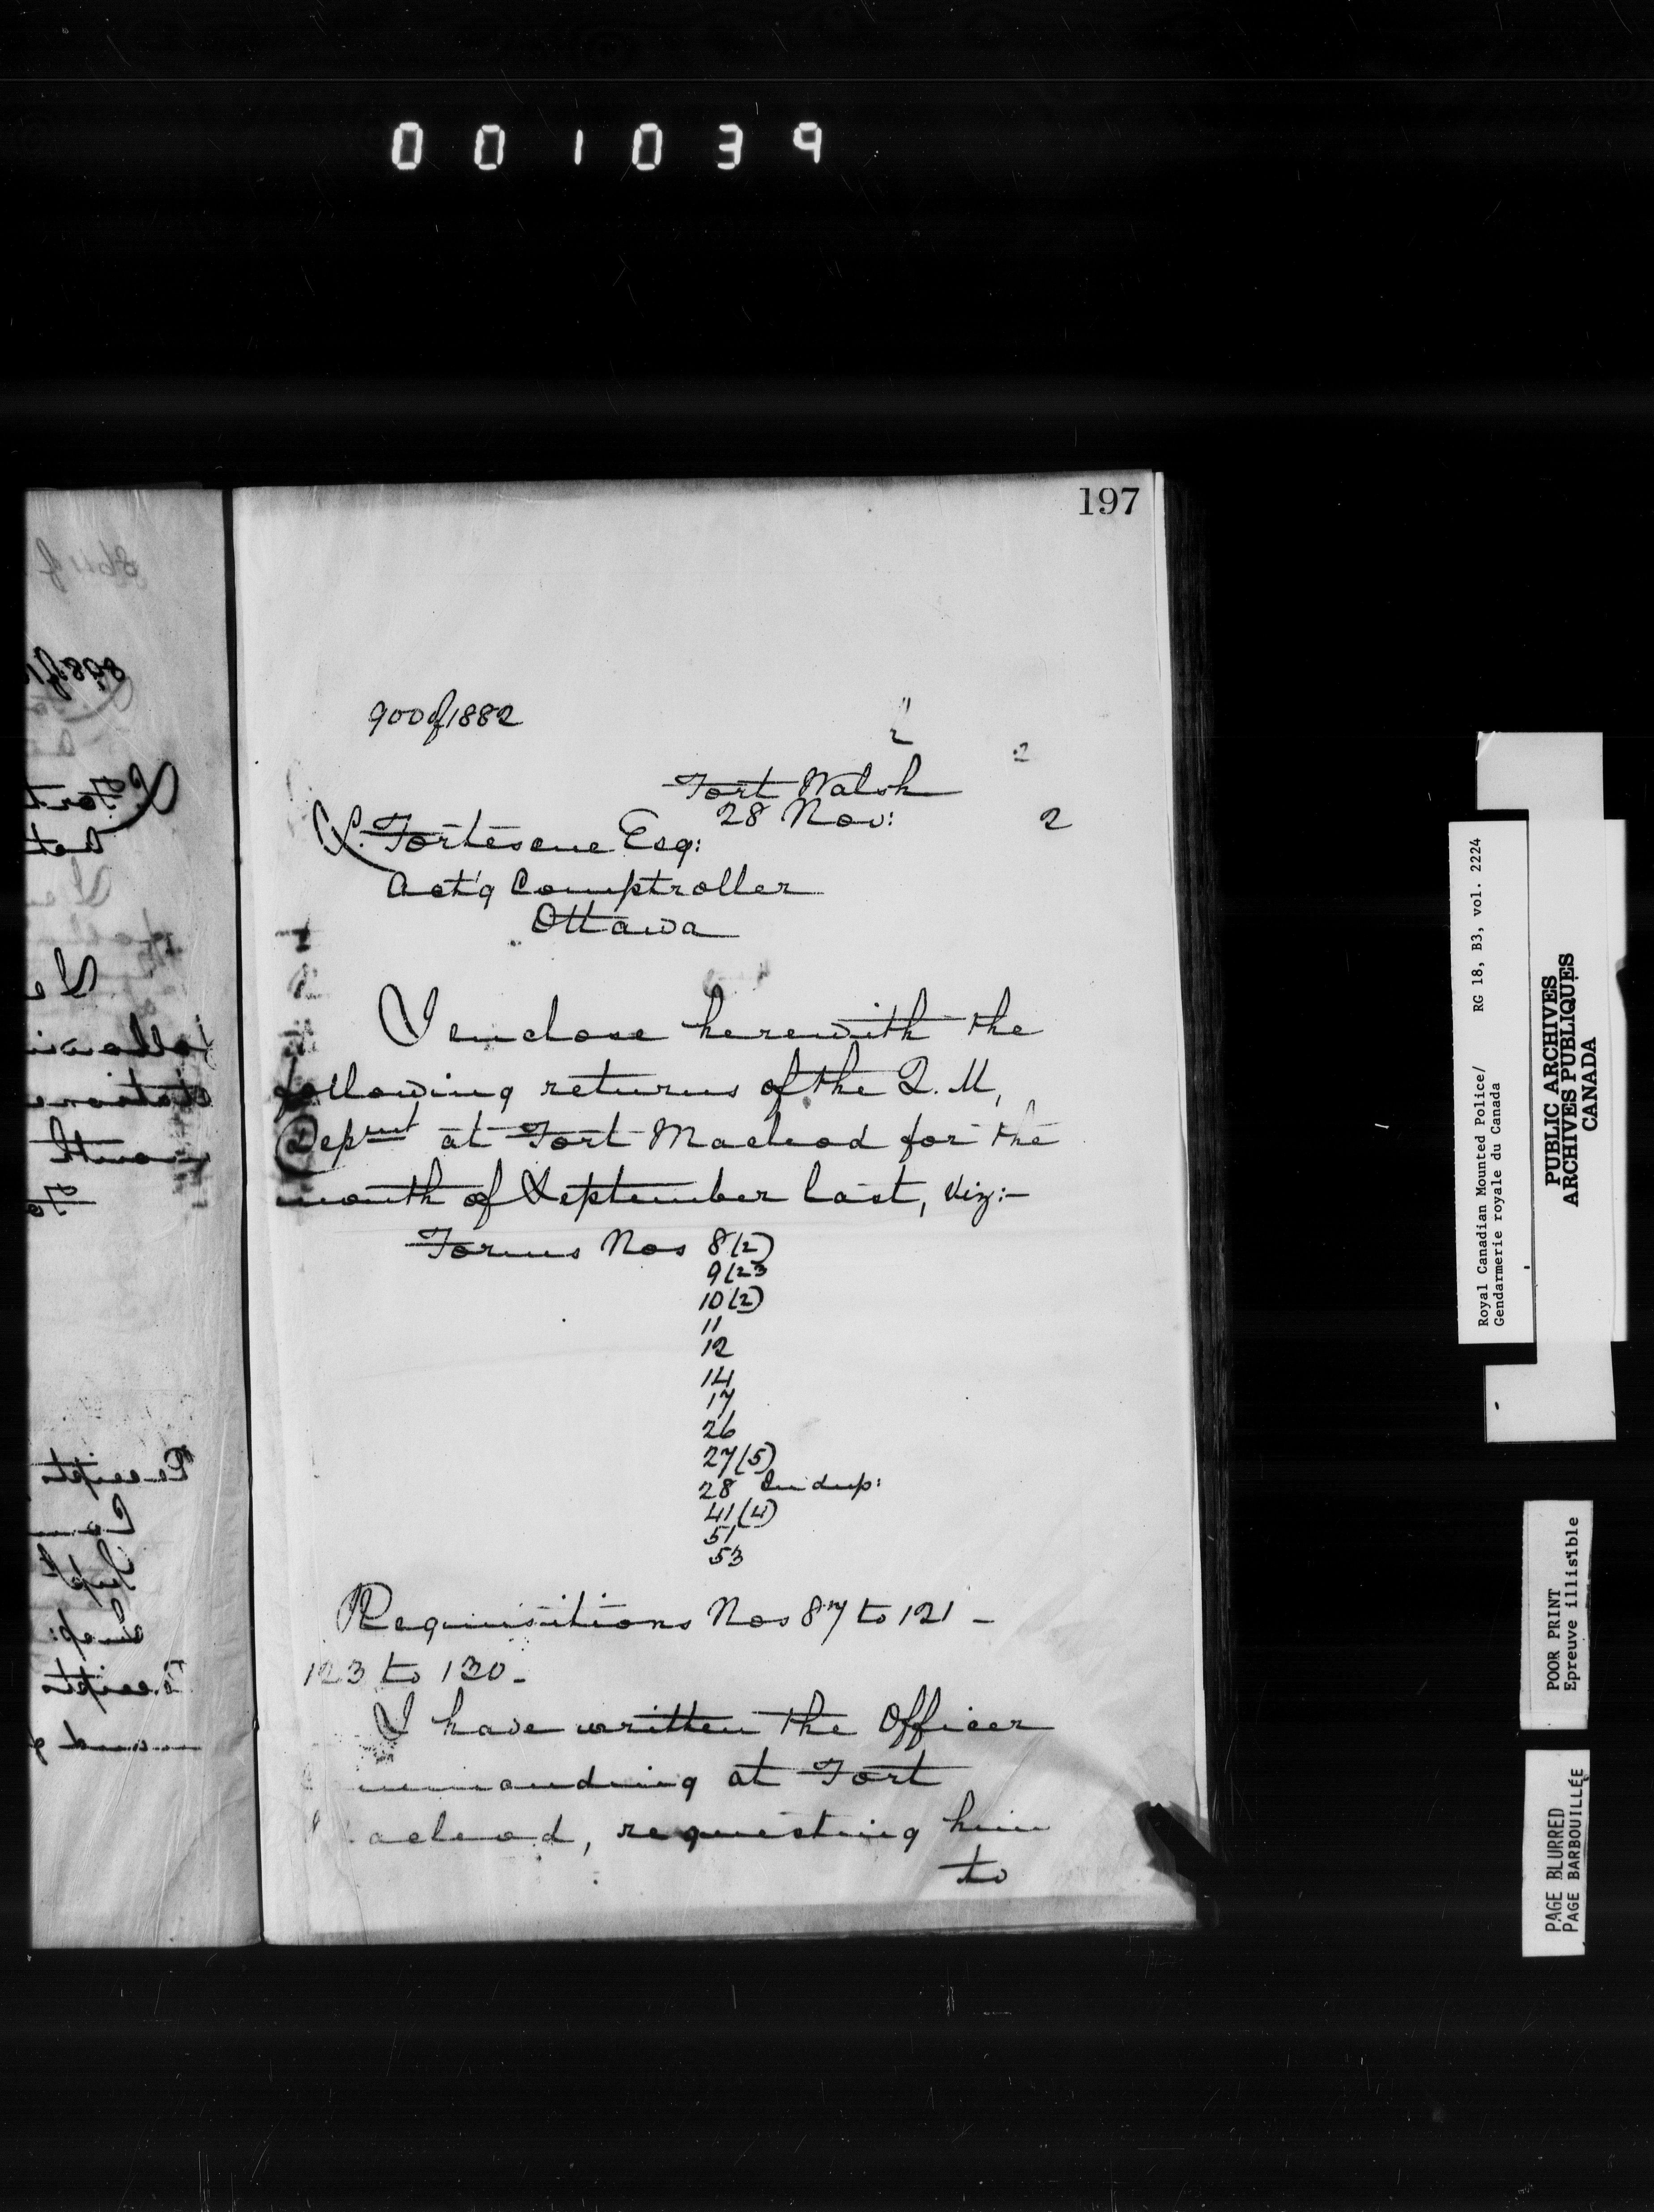 001039
197
900 of 1882
Fort Walsh
28 Nov: 2
L. Fortescue Esq:
Act'g Comptroller
Ottawa
I enclose herewith the
following returns of the Q.M.
Depmt at Fort Macleod for the
month of September last, viz:-
Forms Nos 8(2)
9(23
10(2)
11
12
14
17
26
27(5)
28 In dup:
41(4)
51
53
Requisitions Nos 87 to 121 -
123 to 130 -
I have written the Officer
ommanding at Fort
acleod, requesting him
to
Royal Canadian Mounted Police/ RG 18, B3, vol. 2224
Gendarmerie royale du Canada
PUBLIC ARCHIVES
ARCHIVES PUBLIQUES
CANADA
POOR PRINT
Epreuve illisible
PAGE BLURRED
PAGE BARBOUILLÉE